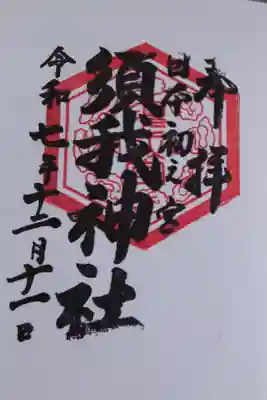 奉拝
日本初之宮
須我神社
令和七年十二月十一日